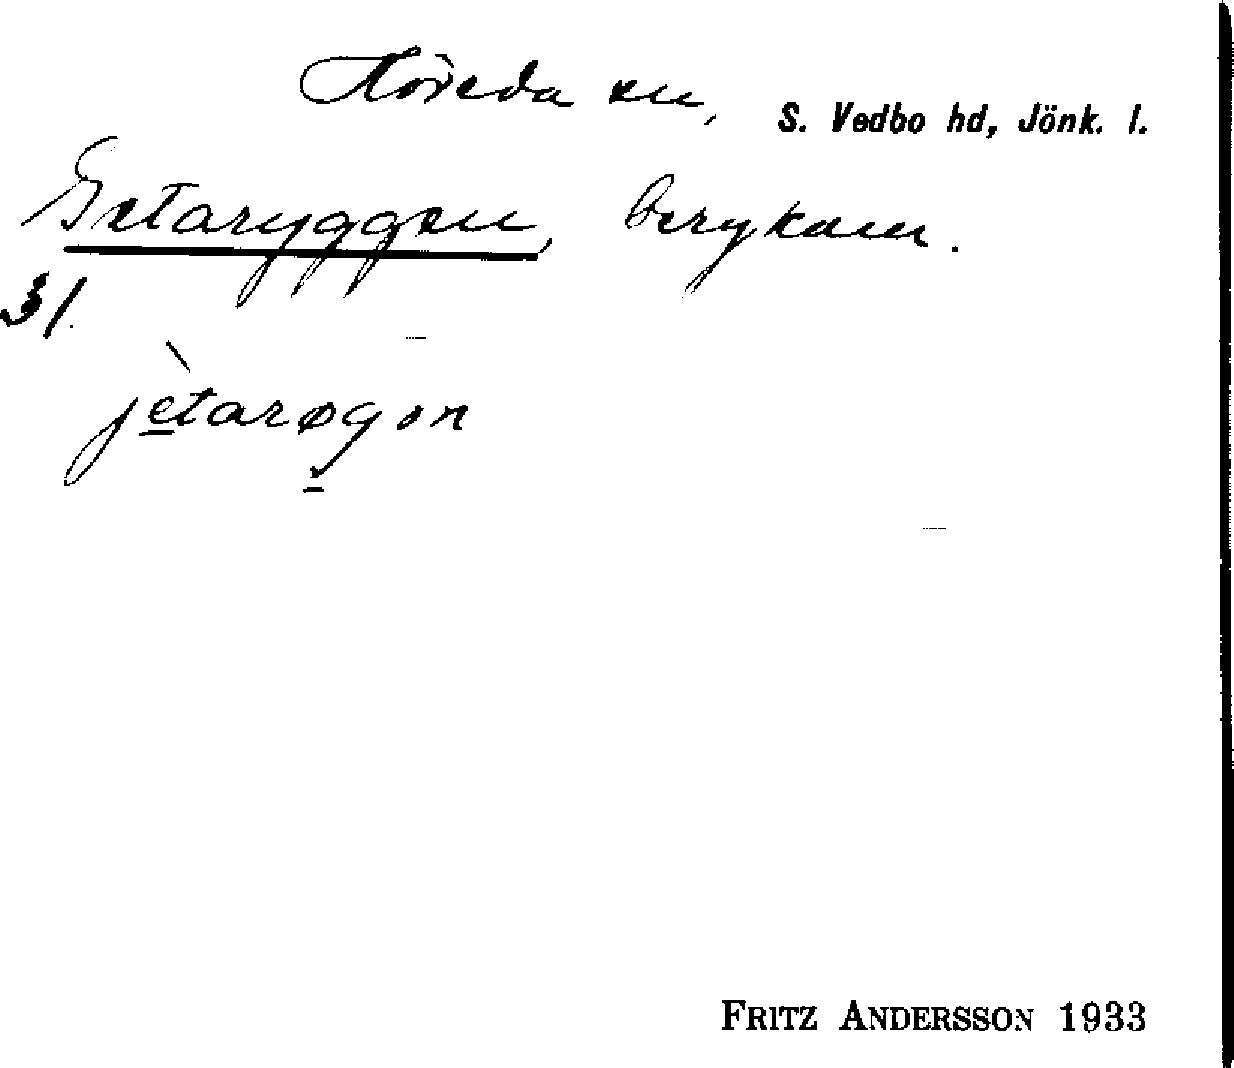 Höreda sn, S. Vedbo hd, Jönk. l.
Getaryggen, bergkam.
31.
jètarøgən
FRITZ ANDERSSON 1933